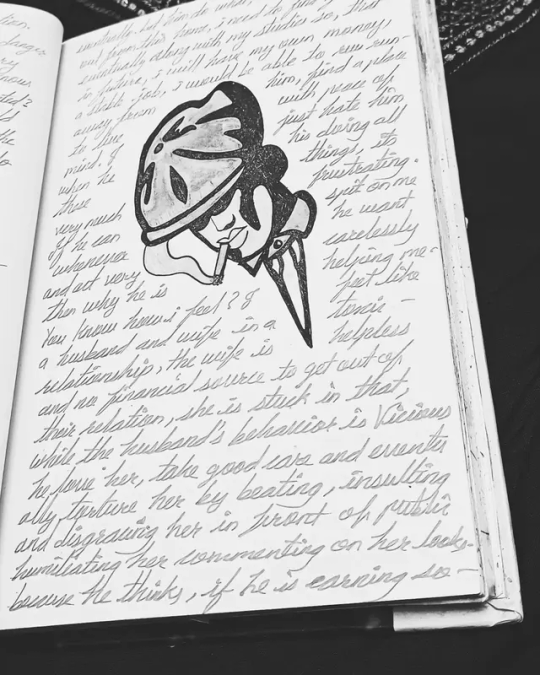 tion.
eventually. Let him do what, I need to find
out from this home, i need to
eventually along with my studies so, that
in future, i will have my own money,
a stable job, i would be able to run run-
away from him, find a place
to live with peace of
mind. I just hate him,
when he his doing all
these things, its
very much frustrating.
if he can spit on me
whenever he want
and act very carelessly
then why he is helping me-
You know how i feel? I feel like
a husband and wife in a toxic -
relationship, the wife is helpless
and no financial source to get out of
their relation, she is stuck in that,
while the husband's behavior is Vicious
he her, take good care and eventu
ally torture her by beating, insulting
and disgracing her in front of public
humiliating her commenting on her looks.
because he thinks, if he is earning so-